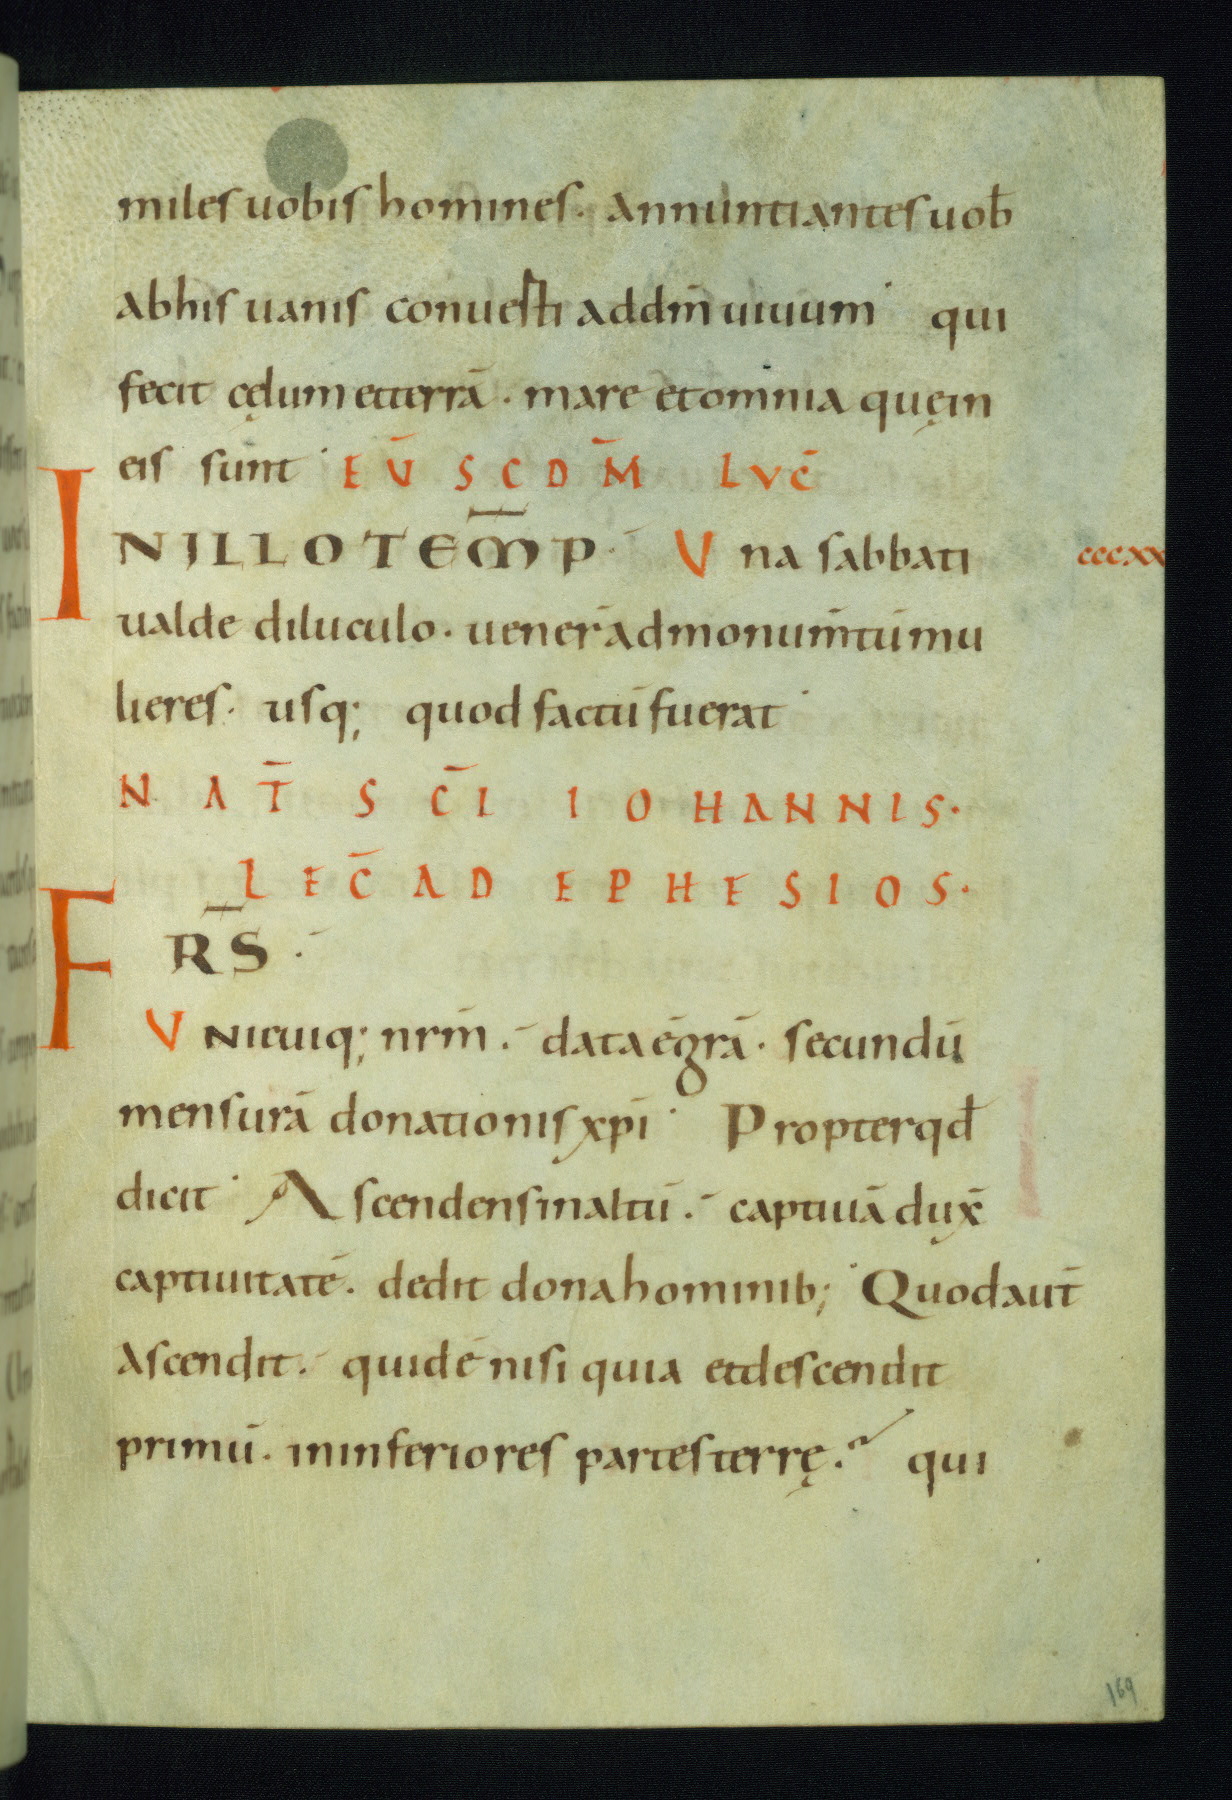 miles uobis homines. Annuntiantes uob̄
abhis uanis conuesti addm̄ uiuum qui
fecit cęlum etterrā. mare etomnia quęin
eis sunt EŪ SCDM̄ LVC̄
INILLOTEM̄P Una sabbati cccxx
ualde diluculo. uener̄admonum̄tūmu
lieres. usq; quod factū fuerat
NAT̄ SC̄I IOHANNIS.
LEC̄ AD EPHESIOS.
FRS̄.
Unicuiq; nrm̄. data ē grā. secundū
mensurā donationis xpī Propterqđ
dicit Ascendensinaltū. captiuā dux̄
captiuitatē. dedit donahominib; Quodaut̄
Ascendit. quidē nisi quia etdescendit
primū. ininferiores partesterrę. qui
169